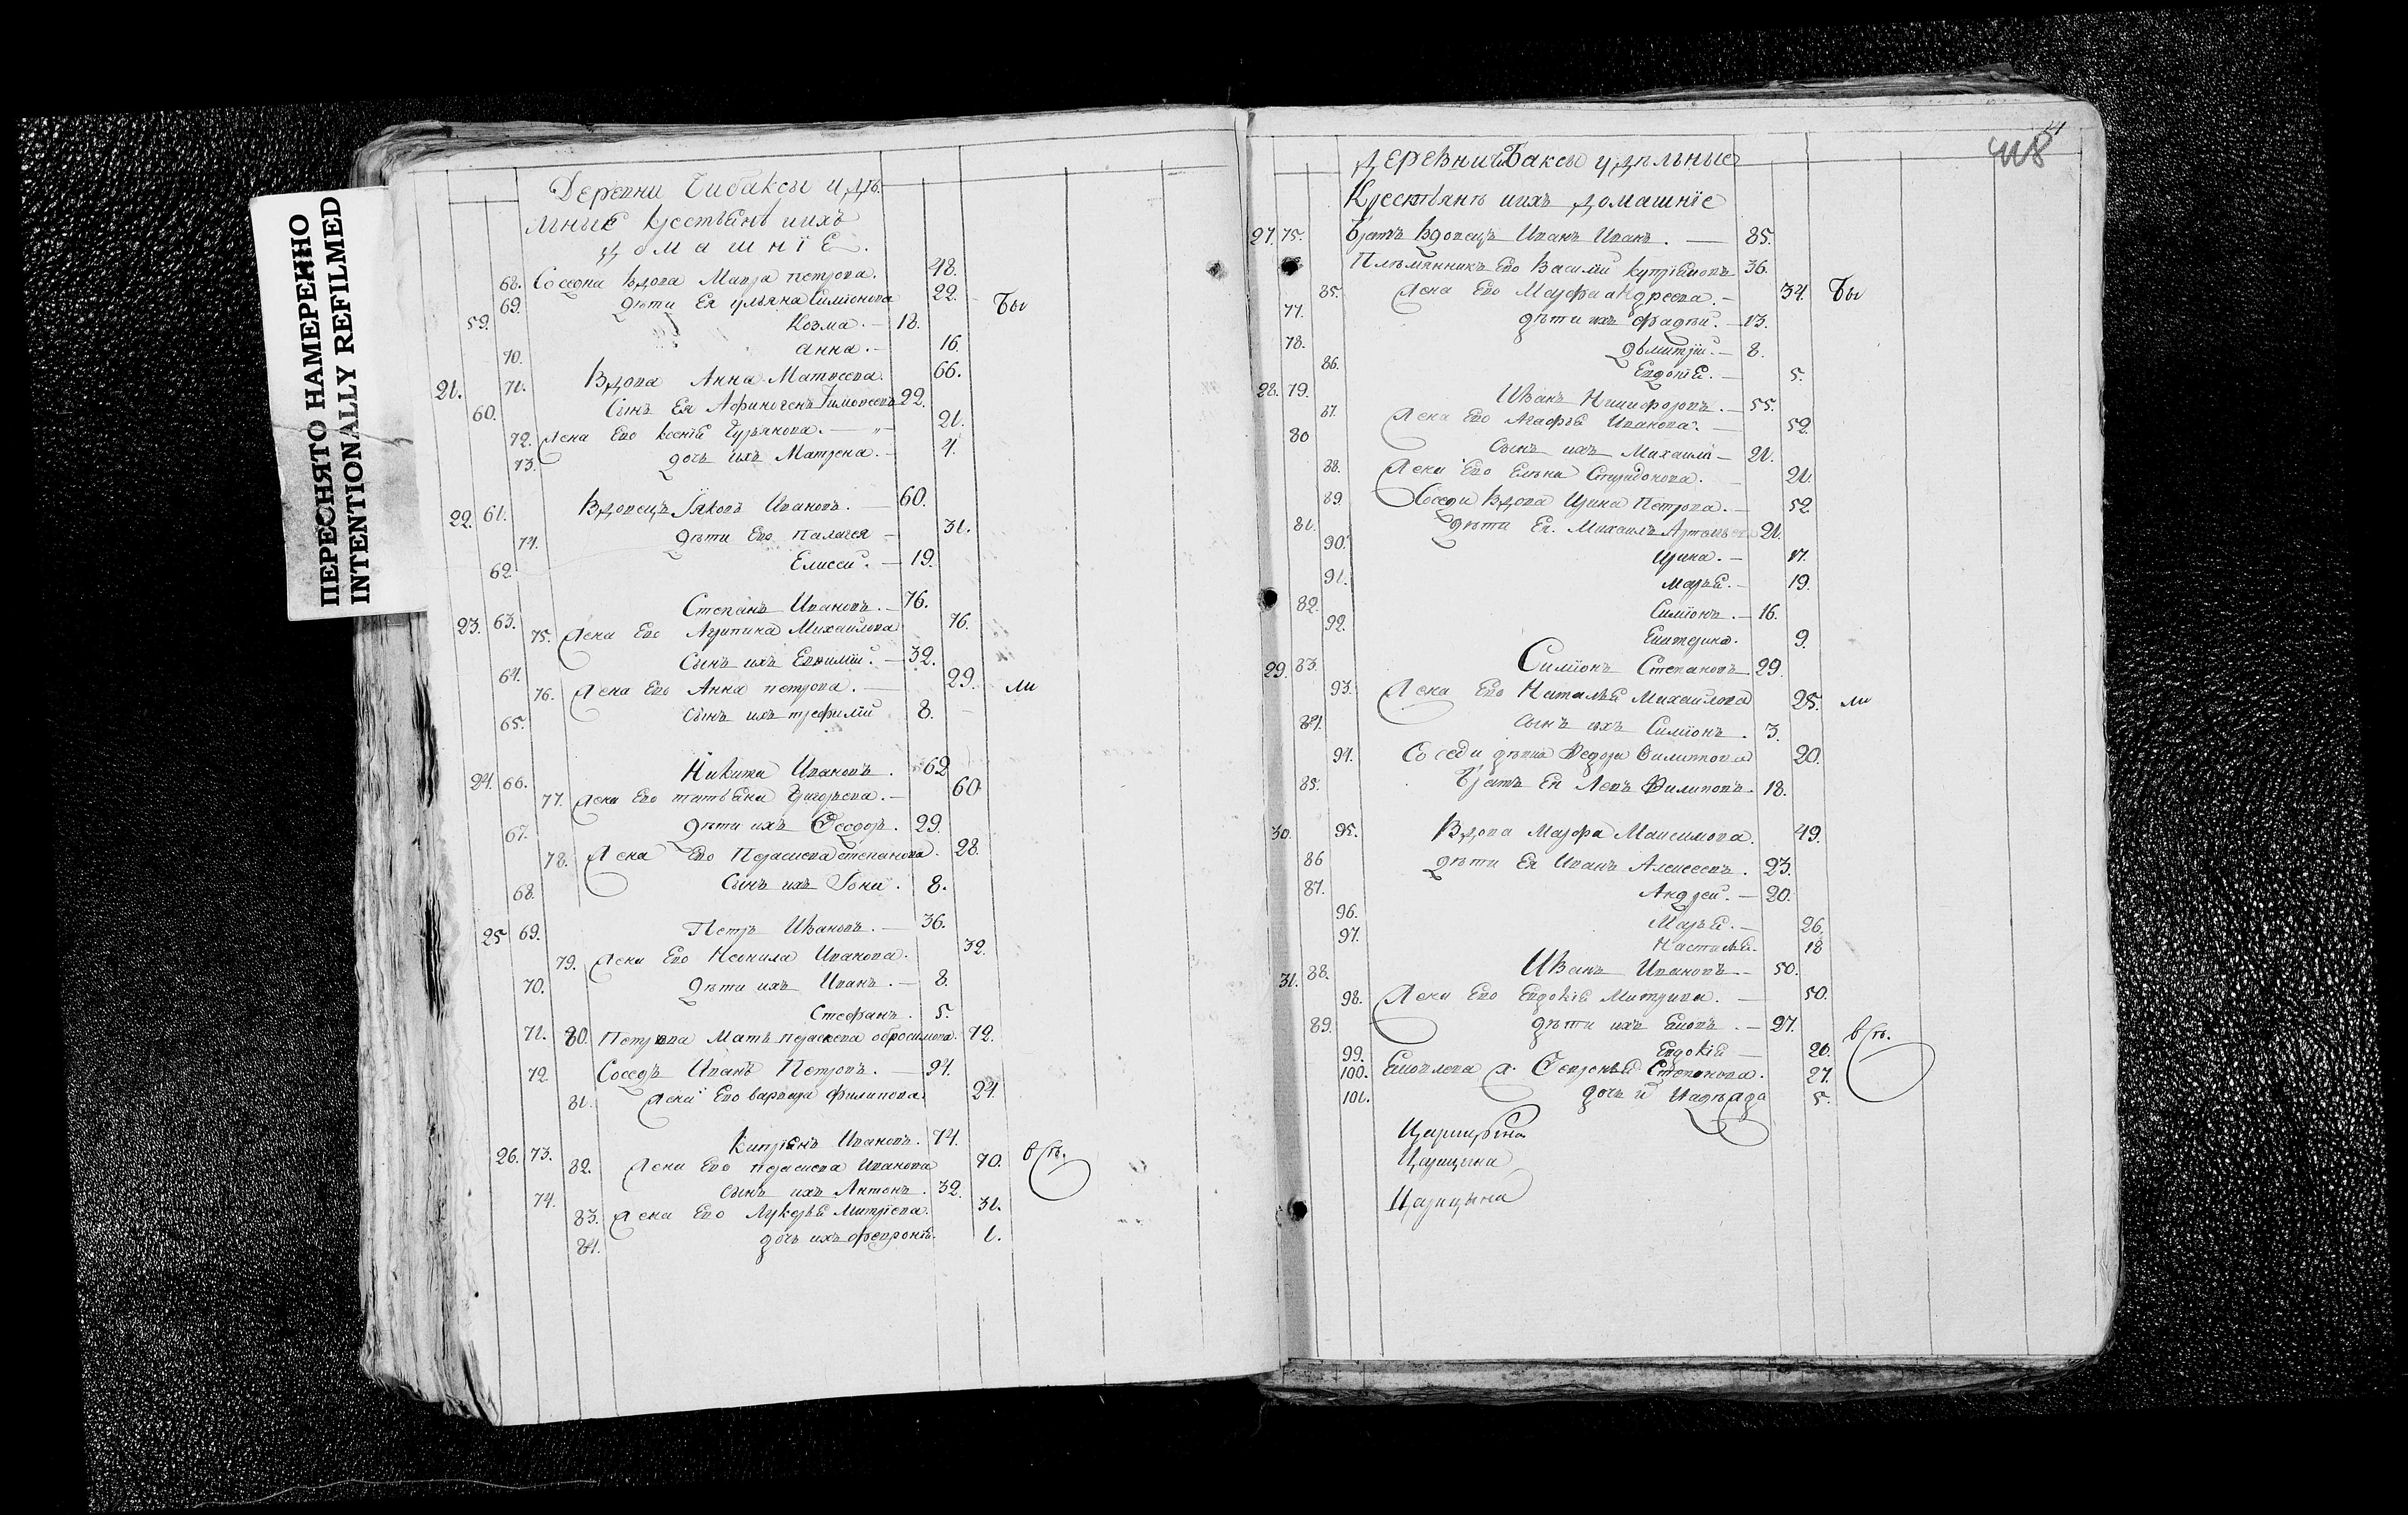 ПЕРЕСНЯТО НАМЕРЕННО
INTENTIONALLY REFILMED
Деревни Чибаксы удѣ
льные крестьянѣ иихъ
домашнїе.
68. Соседка вдова Мавра петрова. 48.
69. дѣти Ея ульяна Симїонова 22. бы
59. Козма. — 18.
70. анна. — 16.
21. 71. Вдова Анна Матвеева. 66.
60. Сынъ Ея Афиногенъ Тимофеевъ 22.
72. Жена Ево ксенїя Гурьянова. — 21.
73. дочь ихъ Матрена. — 4.
22. 61. Вдовецъ Їяковъ Ивановъ. — 60.
74. дѣти Ево Палагея — 31.
62. Елисеи. — 19.
23. 63. Степанъ Ивановъ. — 76.
75. Жена Ево Агрипина Михаилова 76.
64. Сынъ ихъ Евѳимїи. — 32.
76. Жена Ево Анна петрова. — 29. ли
65. Сынъ ихъ трефилїи 8.
24. 66. Никита Ивановъ. 62
77. Жена Ево татьяна Григорьева. — 60.
67. дѣти ихъ Ѳеодоръ. 29.
78. Жена Ево Параскева степанова. 28.
68. Сынъ ихъ Їона. 8.
25 69. Петръ Ивановъ. — 36.
79. Жена Ево Неонила Иванова. 32.
70. дѣти ихъ Иванъ. — 8.
71. Стефанъ. 5.
80. Петрова Мать параскева обросимова. 72.
72 Соседъ Иванъ Петровъ. — 24.
81. Жена Ево варвара филипова 24.
26. 73. Кипрїянъ Ивановъ. 74.
82. Жена Ево параскева Иванова 70. в сѣ.
74. Сынъ ихъ Антонъ. 32.
83. Жена Ево Лукерья Митрїева. 31.
84. дочь ихъ феѵронїя. 1.
418
деревни Чибаксы удѣльные
Крестьянѣ иихъ домашнїе
27. 75. Братъ вдовецъ Иванъ Иванов. — 85.
Племянникъ Ево Василїи купрїяновъ 36.
85. Жена Ево Марфа андреева. — 34. бы
77. дѣти ихъ фадѣи. — 13.
78. дмитрїи. — 8.
86. Евдокїя. — 5.
28. 79. Иванъ Никифоровъ. — 55.
87. Жена Ево Агафья Иванова. — 52.
80 Сынъ ихъ Михаилъ — 21.
88. Жена Ево Елѣна Спиридонова. 21.
89. Соседи вдова Ирина Петрова. — 52.
81. дѣти Ея. Михаилъ Артемьевъ 21.
90. Ирина. — 17.
91. Марья. — 19.
82. Симїонъ. — 16.
92. Екатерина. 9.
29. 83. Симїонъ Степановъ 29.
93. Жена Ево Наталья Михаилова 25. ли
84. Сынъ ихъ Симїонъ. 3.
94. Соседи дѣвка Федора Филиппова 20.
85. Братъ Ея Левъ Филиповъ. 18.
30. 95. Вдова Марфа Максимова. 49.
86 дѣти Ея Иванъ Алексеевъ. 23.
87. Андреи. — 20.
96. Марья. — 26.
97. Настасья. 18
31. 88. Иванъ Ивановъ — 50.
98. Жена Ево Евдокїя Митрива. — 50.
89. дѣти ихъ Яковъ. — 27. в сѣ.
99. Евдокїя — 20.
100. Яковлева ж. Ѳевронья Степанова. 27.
101. дочь и Надѣжда 5.
Царицына
Царицына
Царицына